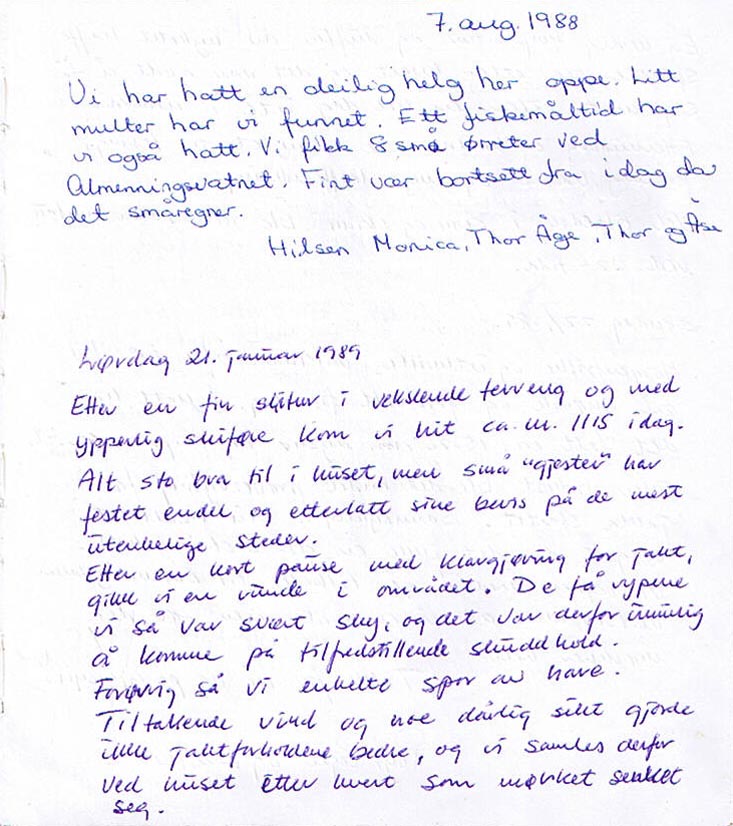 7. aug. 1988
Vi har hatt en deilig helg her oppe. Litt
multer har vi funnet. Ett fiskemåltid har
vi også hatt. Vi fikk 8 små ørreter ved
Almenningsvatnet. Fint vær bortsett fra idag da
det småregner.
Hilsen Monica, Thor Åge, Thor og Åse
Lørdag 21. januar 1989
Etter en fin skitur i vekslende terreng og med
ypperlig skiføre kom vi hit ca. kl. 1115 idag.
Alt sto bra til i huset, men små "gjester" har
festet endel og etterlatt sine bevis på de mest
utenkelige steder.
Etter en kort pause med klargjøring for jakt,
gikk vi en runde i området. De få rypene
vi så var svært sky, og det var derfor umulig
å komme på tilfredstillende skuddhold.
Forøvrig så vi enkelte spor av hare.
Tiltakende vind og noe dårlig sikt gjorde
ikke jaktforholdene bedre, og vi samles derfor
ved huset etter hvert som mørket senket
seg.